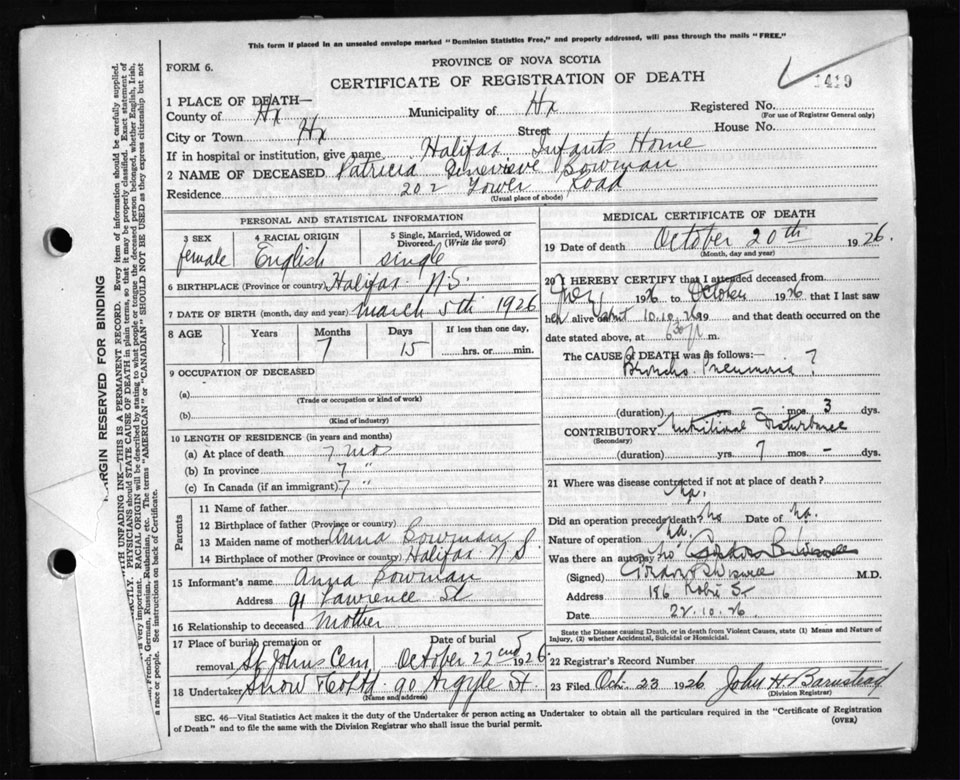 This form if placed in an unsealed envelope marked "Dominion Statistics Free," and properly addressed, will pass through the mails "FREE."
FORM 6.
PROVINCE OF NOVA SCOTIA
CERTIFICATE OF REGISTRATION OF DEATH
1419
1 PLACE OF DEATH—
County of Hx Municipality of Hx Registered No.
(For use of Registrar General only)
City or Town Hx Street House No.
If in hospital or institution, give name Halifax Infants Home
2 NAME OF DECEASED Patricia Genevieve Bowman
Residence 202 Tower Road
(Usual place of abode)
PERSONAL AND STATISTICAL INFORMATION
3 SEX female
4 RACIAL ORIGIN English
5 Single, Married, Widowed or Divorced. (Write the word) single
6 BIRTHPLACE (Province or country) Halifax N.S.
7 DATE OF BIRTH (month, day and year) March 5th 1926
8 AGE Years Months Days If less than one day,
7 15 hrs. or min.
9 OCCUPATION OF DECEASED
(a)
(Trade or occupation or kind of work)
(b)
(Kind of industry)
10 LENGTH OF RESIDENCE (in years and months)
(a) At place of death 7 mos
(b) In province 7 "
(c) In Canada (if an immigrant) 7 "
Parents
11 Name of father
12 Birthplace of father (Province or country)
13 Maiden name of mother Anna Bowman
14 Birthplace of mother (Province or country) Halifax N S.
15 Informant's name Anna Bowman
Address 91 Lawrence St
16 Relationship to deceased Mother
17 Place of burial cremation or removal St. Johns Cem Date of burial October 22nd 1926
18 Undertaker Snow & Co Ltd. 90 Argyle St.
(Name and address)
MEDICAL CERTIFICATE OF DEATH
19 Date of death October 20th 1926.
(Month, day and year)
20 I HEREBY CERTIFY that I attended deceased from
1926 to October 1926 that I last saw
her alive about 10.10.26 19 and that death occurred on the
date stated above, at 6 30 p m.
The CAUSE of DEATH was as follows:—
Broncho Pneumonia ?
(duration) yrs. – mos. 3 dys.
CONTRIBUTORY Nutritional Disturbance
(Secondary)
(duration) yrs. 7 mos. – dys.
21 Where was disease contracted if not at place of death?
Hx.
Did an operation precede death? No Date of No.
Nature of operation no.
Was there an autopsy? no
(Signed) Wiswell M.D.
Address 186 Robie St
Date 22.10.26
State the Disease causing Death, or in death from Violent Causes, state (1) Means and Nature of Injury, (2) whether Accidental, Suicidal or Homicidal.
22 Registrar's Record Number
23 Filed Oct. 23 1926 John H Barnstead
(Division Registrar)
SEC. 46—Vital Statistics Act makes it the duty of the Undertaker or person acting as Undertaker to obtain all the particulars required in the "Certificate of Registration of Death" and to file the same with the Division Registrar who shall issue the burial permit.
(OVER)
MARGIN RESERVED FOR BINDING
WITH UNFADING INK—THIS IS A PERMANENT RECORD. Every item of information should be carefully supplied.
PHYSICIANS should STATE CAUSE OF DEATH in plain terms, so that it may be properly classified. Exact statement of
very important. RACIAL ORIGIN will be described by stating to what people or tongue the deceased person belonged, whether English, Irish,
French, German, Russian, Ruthenian, etc. The terms "AMERICAN" or "CANADIAN" SHOULD NOT BE USED as they express citizenship but not
a race or people. See instructions on back of Certificate.